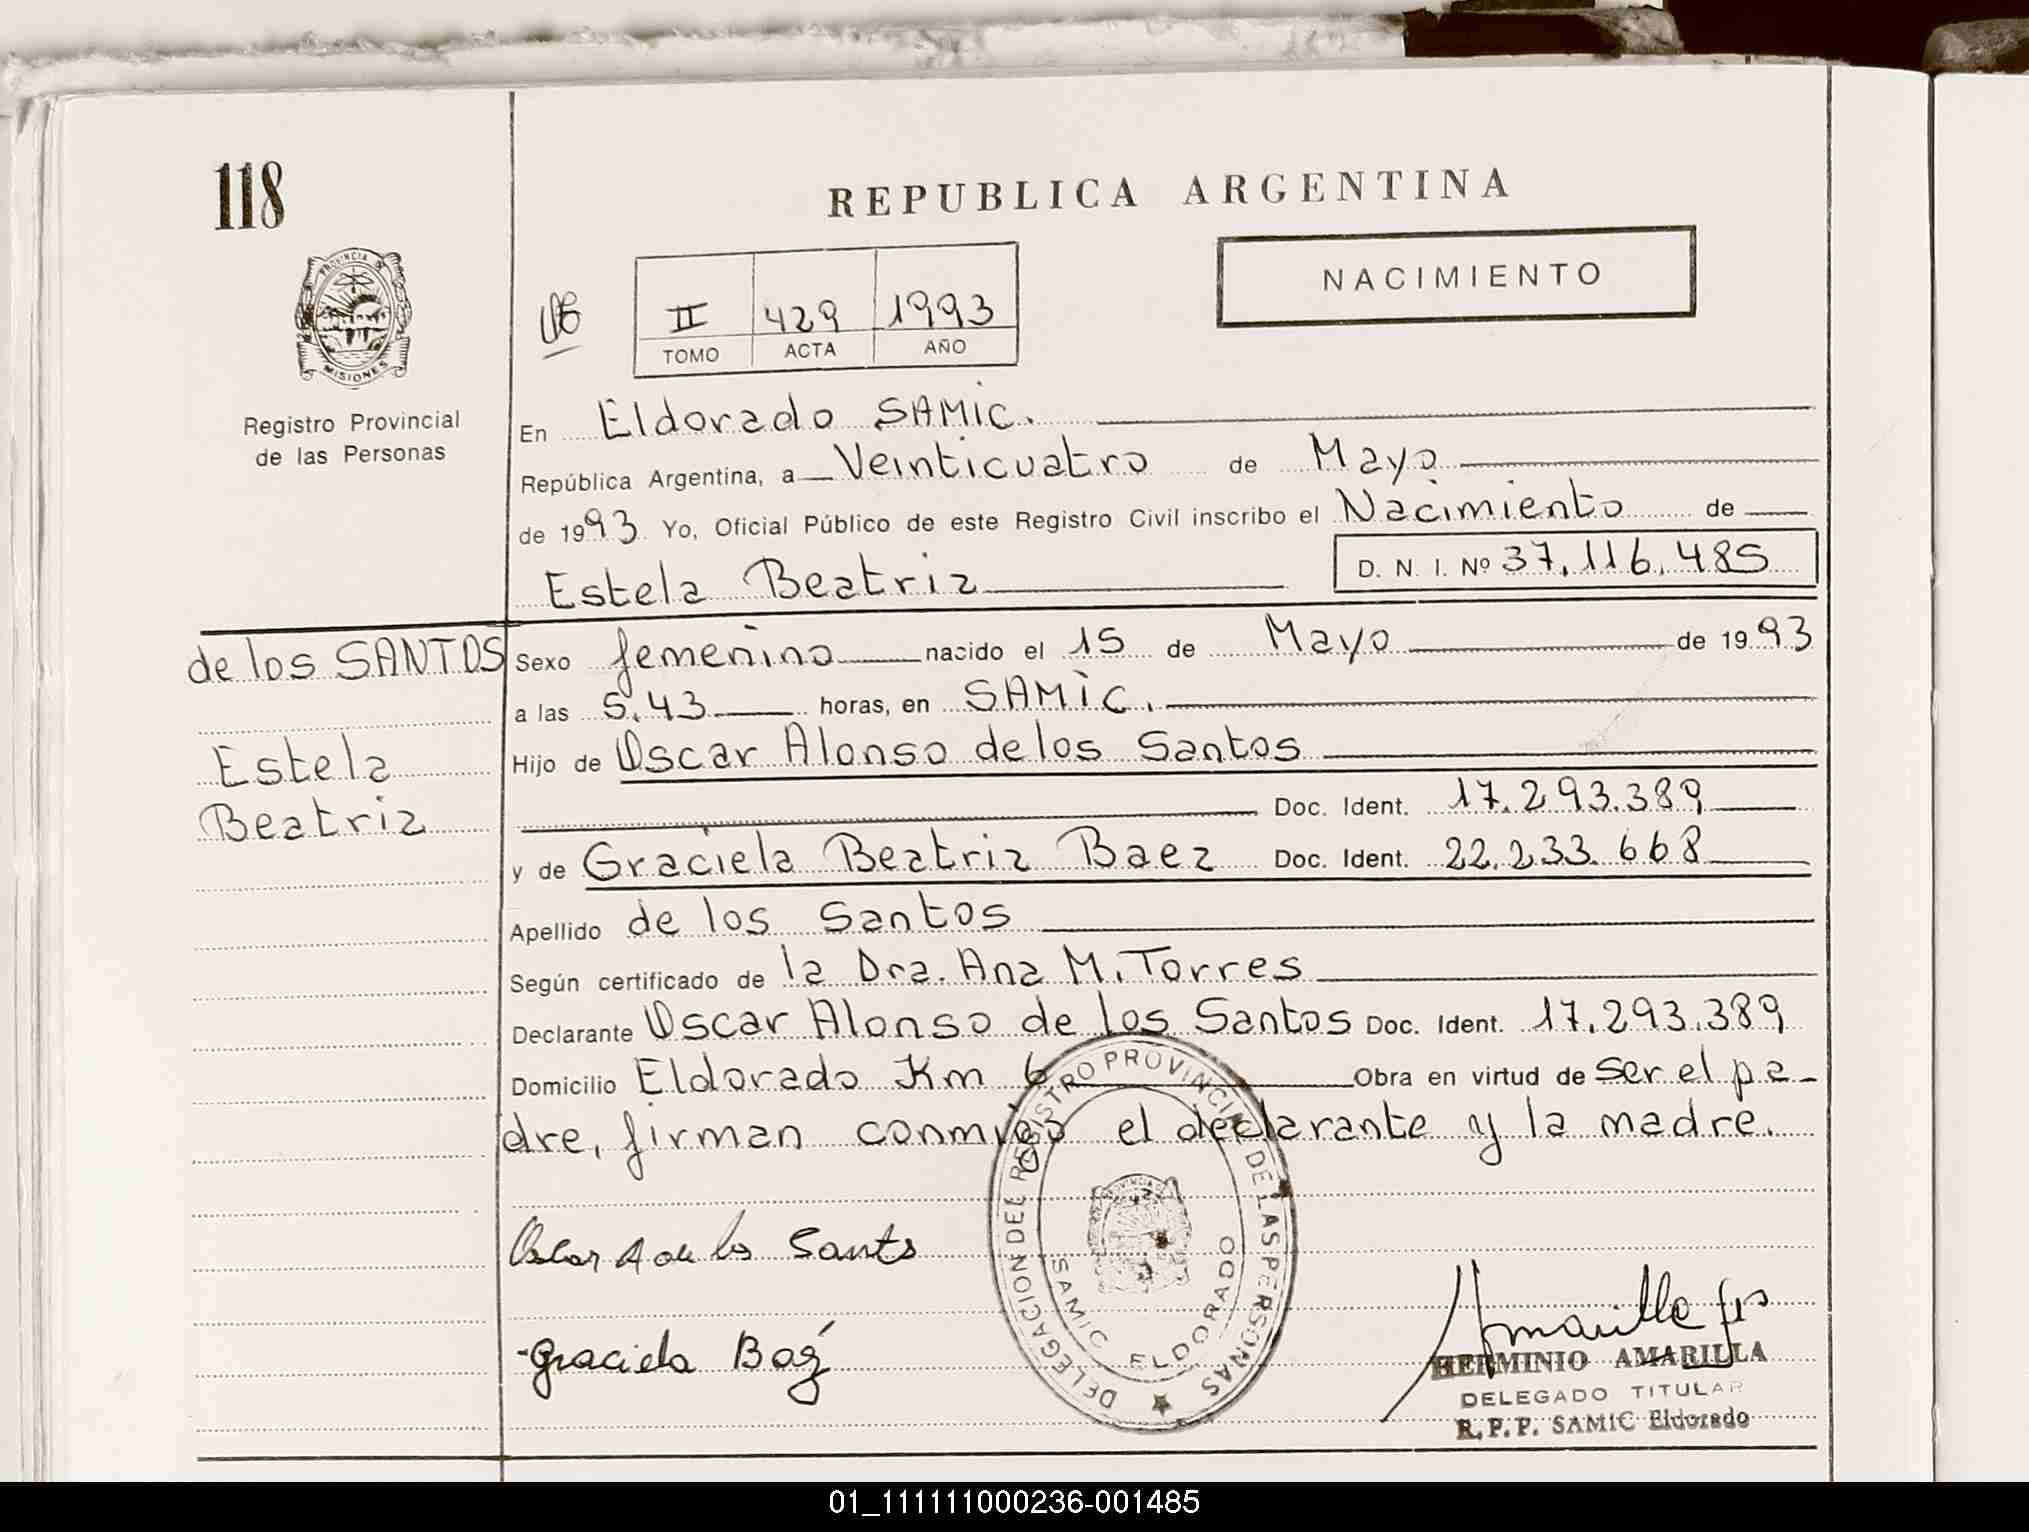 118
REPUBLICA ARGENTINA
PROVINCIA DE
MISIONES
Registro Provincial
de las Personas
II 429 1993
TOMO ACTA AÑO
NACIMIENTO
En Eldorado SAMIC.
República Argentina, a Veinticuatro de Mayo
de 1993 Yo, Oficial Público de este Registro Civil inscribo el Nacimiento de
Estela Beatriz D. N. I. Nº 37.116.485
de los SANTOS
Estela
Beatriz
Sexo femenino nacido el 15 de Mayo de 1993
a las 5.43 horas, en SAMIC.
Hijo de Oscar Alonso de los Santos
Doc. Ident. 17.293.389
y de Graciela Beatriz Baez Doc. Ident. 22.233.668
Apellido de los Santos
Según certificado de la Dra. Ana M. Torres
Declarante Oscar Alonso de los Santos Doc. Ident. 17.293.389
Domicilio Eldorado Km 6 Obra en virtud de ser el pa-
dre, firman conmigo el declarante y la madre.
DELEGACION DEL REGISTRO PROVINCIAL DE LAS PERSONAS
SAMIC ELDORADO
Oscar A de los Santos
Graciela Baez
Amarilla
HERMINIO AMARILLA
DELEGADO TITULAR
R.P.P. SAMIC Eldorado
01_111111000236-001485